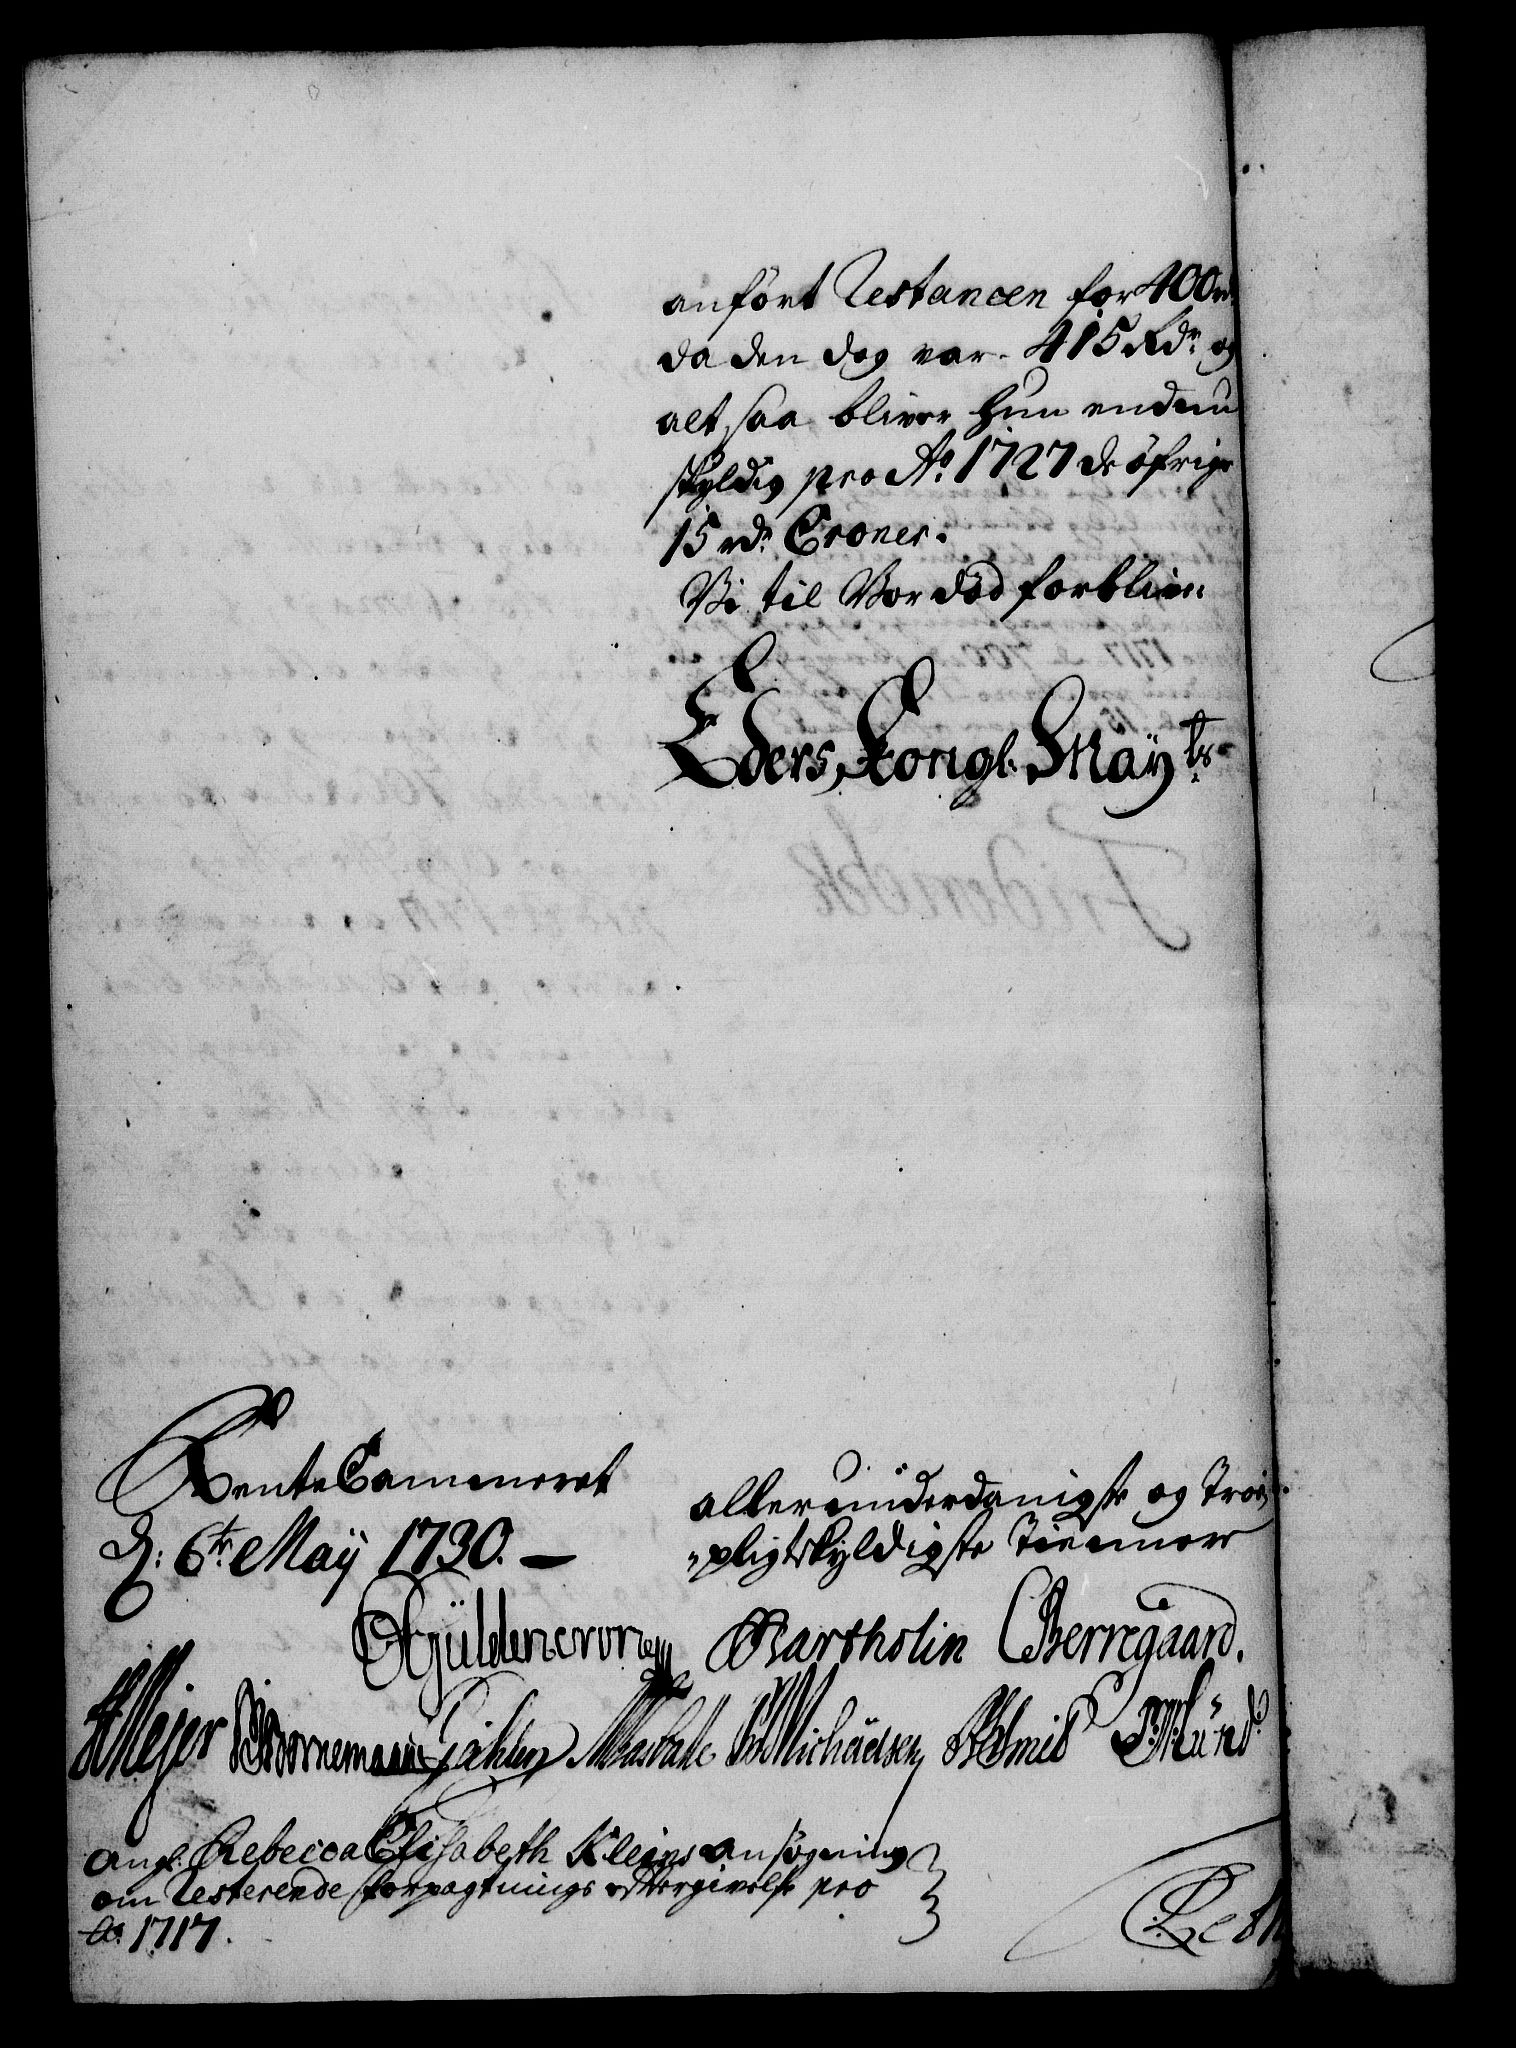 anført Restancen for 400 rd
da den dog var 415 Rdr og
altsaa bliver Hun endnu
skyldig pro Ao 1727 de øfrige
15 rdr Croner.
Vi til Vor død forblive
Eders Kongl. Mayts
RenteCammeret
d: 6te Maij 1730.
allerunderdanigste og Troe
pligtskyldigste Tiennere
Güldencrone Bartholin CBerregaard.
HMejer Bornemann Gählen Michäelsen
angl: Rebecca Elisabeth Kleins ansøgning
om Resterende forpagtnings eftergivelse pro
Ao. 1717.